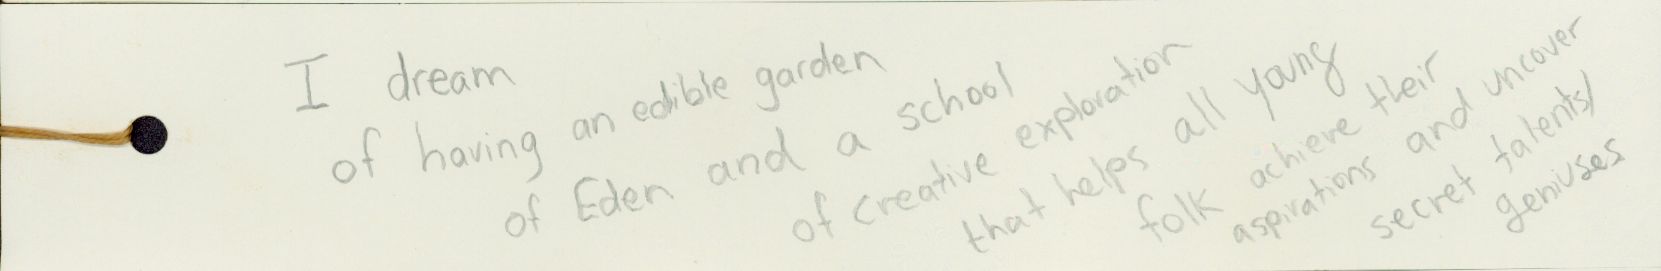 I dream
of having an edible garden
of Eden and a school
of creative exploration
that helps all young
folk achieve their
aspirations and uncover
secret talents/
geniuses